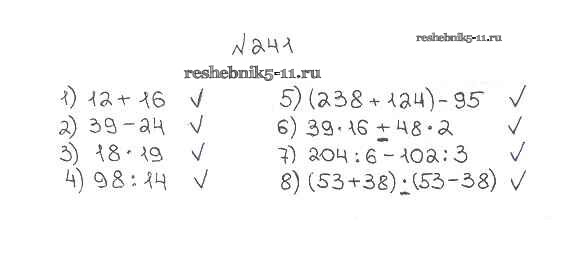 №241
reshebnik5-11.ru
reshebnik5-11.ru
1) 12 + 16 ✓
2) 39 - 24 ✓
3) 18 · 19 ✓
4) 98 : 14 ✓
5) (238 + 124) - 95 ✓
6) 39 · 16 + 48 · 2 ✓
7) 204 : 6 - 102 : 3 ✓
8) (53 + 38) : (53 - 38) ✓